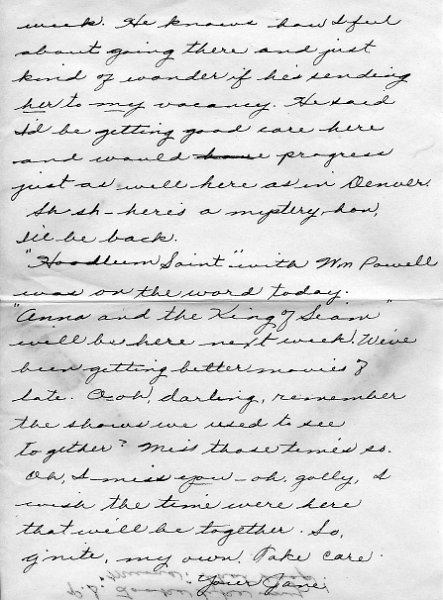 week. He knows how I feel
about going there and just
kind of wonder if he's sending
her to my vacancy. He said
I'd be getting good care here
and would have progress
just as well here as in Denver.
Sh sh - here's a mystery, hon,
I'll be back.
"Hoodlum Saint" with Wm Powell
was on the ward today.
"Anna and the King of Seiam"
will be here next week! We've
been getting better movies of
late. O-oh, darling, remember
the shows we used to see
together? Miss those times so.
Oh, I miss you - oh, golly, I
wish the time were here
that we'll be together. So,
g'nite, my own. Take care.
Your Jane.
P.S.